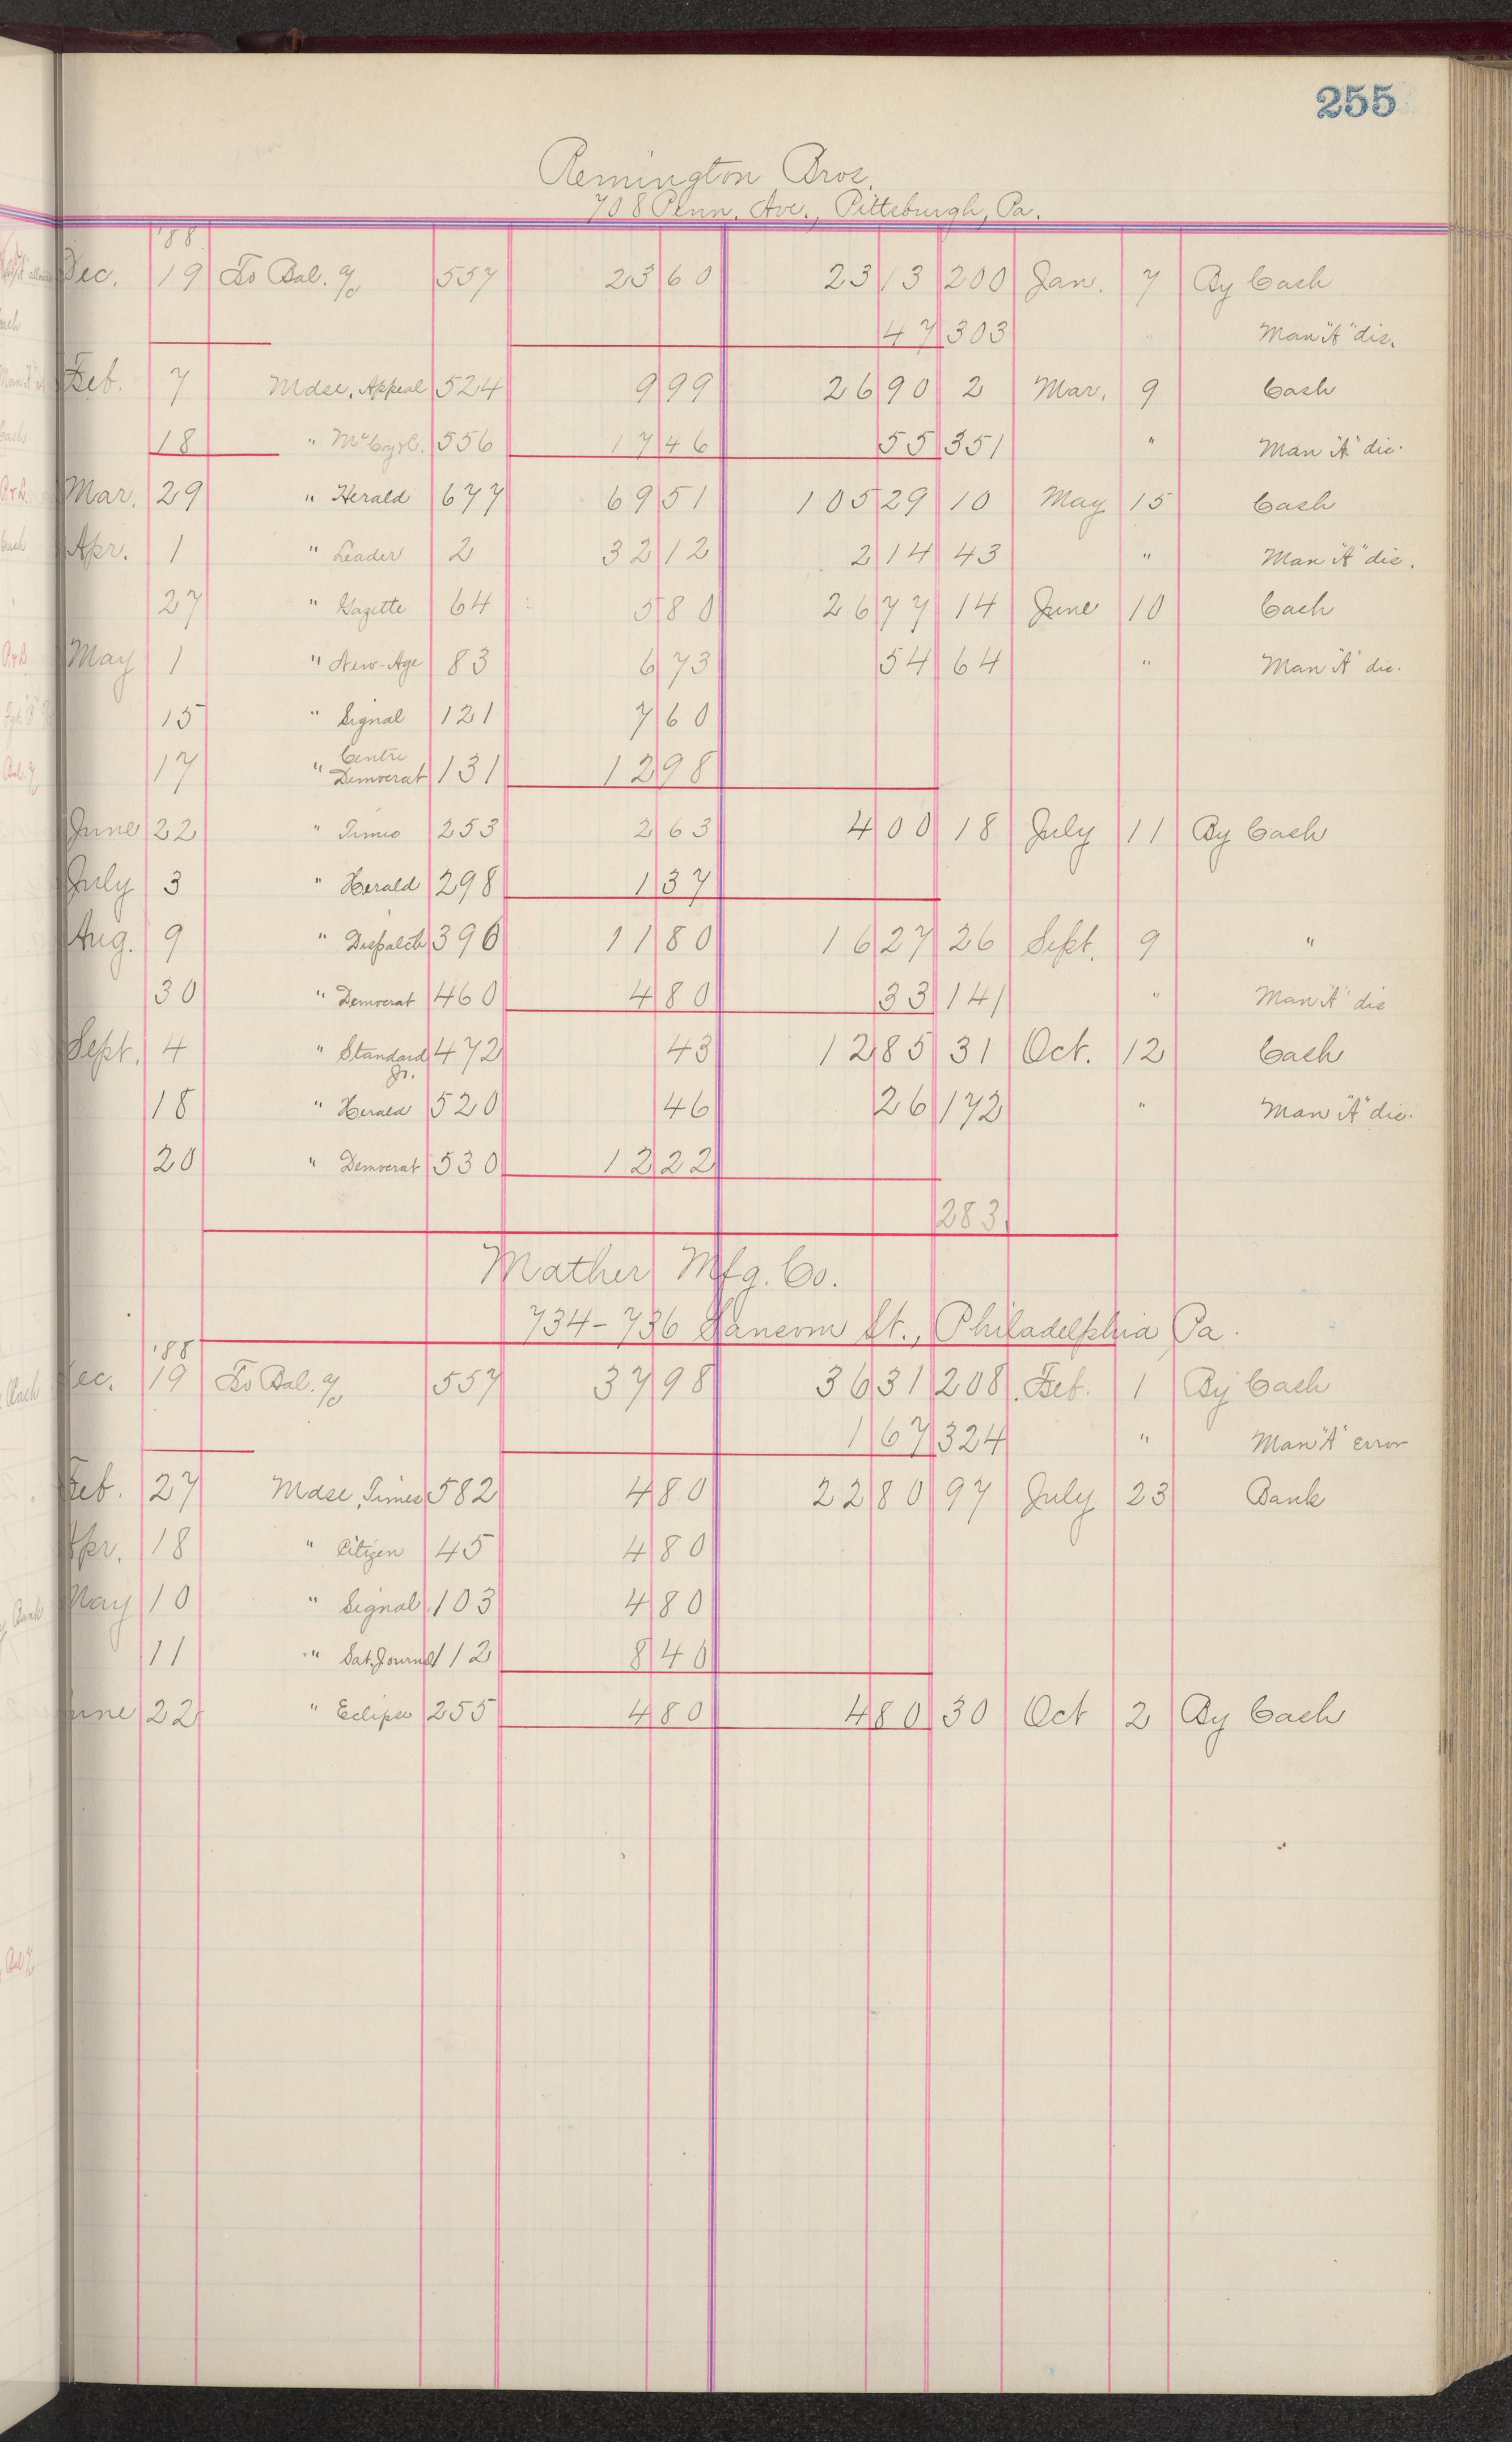 255
Remington Bros.
708 Penn. Ave., Pittsburgh, Pa.
'88
Dec. 19 To Bal. a/c 557 23 60 23 13 200 Jan. 7 By Cash
47 303 " Man "A" dis.
Feb. 7 Mdse. Appeal 524 9 99 26 90 2 Mar. 9 Cash
18 " 556 17 46 55 351 " Man "A" dis.
Mar. 29 " Herald 677 69 51 105 29 10 May 15 Cash
Apr. 1 " Leader 2 32 12 2 14 43 " Man "A" dis.
27 " Gazette 64 5 80 26 77 14 June 10 Cash
May 1 " New-Age 83 6 73 54 64 " Man "A" dis.
15 " Signal 121 7 60
17 " Centre Democrat 131 12 98
June 22 " Times 253 2 63 4 00 18 July 11 By Cash
July 3 " Herald 298 1 37
Aug. 9 " Dispatch 396 11 80 16 27 26 Sept. 9 "
30 " Democrat 460 4 80 33 141 " Man "A" dis
Sept. 4 " Standard 472 43 12 85 31 Oct. 12 Cash
Jr.
18 " Herald 520 46 26 172 " Man "A" dis.
20 " Democrat 530 12 22
283
Mather Mfg. Co.
734-736 Sansom St., Philadelphia Pa.
'88
Dec. 19 To Bal. a/c 557 37 98 36 31 208 Feb. 1 By Cash
1 67 324 " Man "A" error
Feb. 27 Mdse, Times 582 4 80 22 80 97 July 23 Bank
Apr. 18 " Citizen 45 4 80
May 10 " Signal 103 4 80
11 " Sat. Journal 112 8 40
June 22 " Eclipse 255 4 80 4 80 30 Oct 2 By Cash